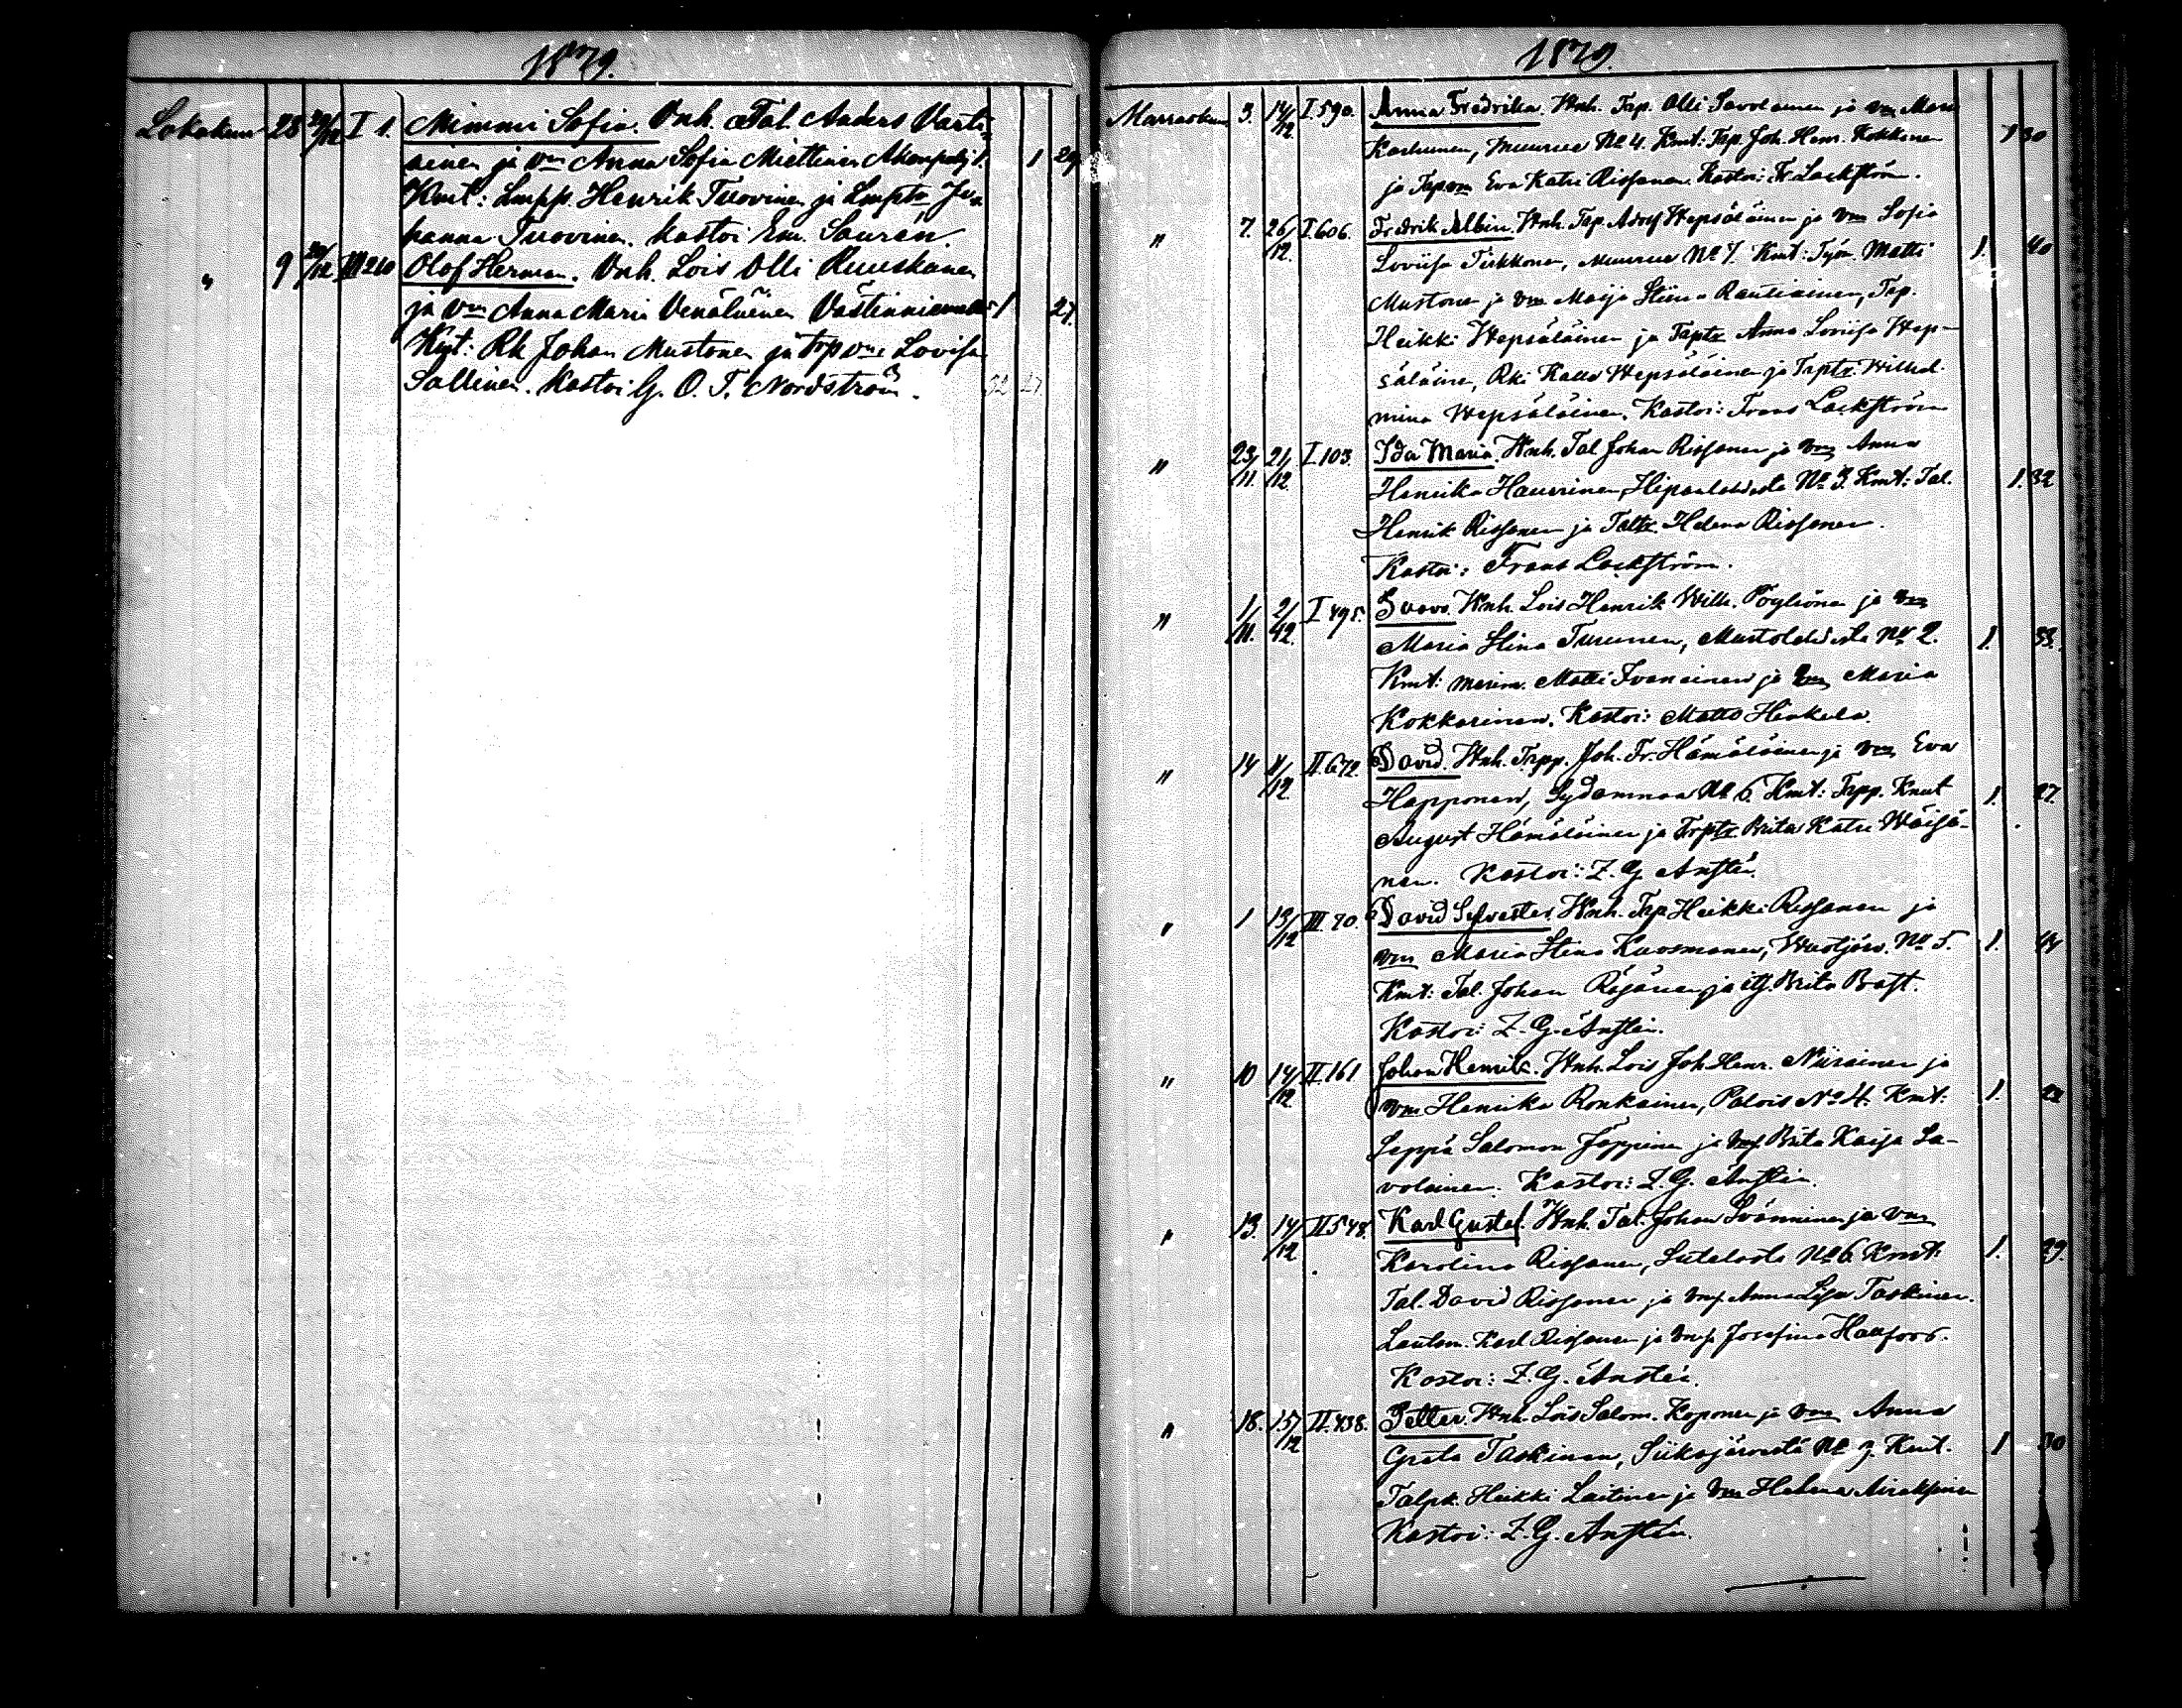 1879.
Lokakuu 28 29/12 I 1. Mimmi Sofia. Vnh. Tal. Anders Vasti-
ainen ja Vm Anna Sofia Miettinen Akonpohj 1. 1 29
Kmt: Lmpp. Henrik Tuovinen ja Lmptr Jo-
hanna Tuovinen. Kastoi Em. Saurén.
" 9 29/12 III 210 Olof Herman. Vnh. Lois Olli Ruuskanen
ja Vm Anna Maria Venäläinen Västinniemellä 5 1 27.
Kmt: Rk Johan Mustonen ja Trp vm Lovisa
Sallinen. Kastoi G. O. T. Nordström. 52 27
1879.
Marraskuu 3. 14/12 I.590. Anna Fredrika. Wnh. Trp. Olli Savolainen ja Vm Maria
Karhunen, Muurue № 4. Kmt: Trp. Joh. Henr. Kokkonen 1 30
ja Trp. vm Eva Katri Rissanen. Kastoi: Fr. Lackström.
" 7. 26/12. I.606. Fredrik Albin. Wnh. Trp. Adolf Hepsäläinen ja Vm Sofia
Loviisa Tirkkonen, Muurue № 7. Kmt: Työm. Matti 1. 40
Mustonen ja Vm Maija Stiina Rautiainen, Trp.
Heikki Wepsäläinen ja Trptr Anna Loviisa Wep-
säläine, Rki Kalle Wepsäläinen ja Trptr. Wilhel-
mina Wepsäläinen. Kastoi: Frans Lackström
" 23/11. 21/12. I.103. Ida Maria. Wnh. Tal. Johan Rissanen ja Vm Anna
Henrika Haurinen, Hipanlahdesta № 3. Kmt: Tal. 1. 32
Henrik Rissanen ja Taltr. Helena Rissanen.
Kastoi: Frans Lackström.
" 1/11. 2/12. I 495. Wnh. Lois Henrik Wilh. Pöyhönen ja Vm
Maria Stina Turunen, Mustolahdesta № 2. 1. 33.
Kmt: Matti Ivanainen ja Vm Maria
Kokkarinen. Kastoi: Matts Henkela.
" 14 11/12. II.672. David. Wnh. Trpp. Joh. Fr. Hämäläinen ja Vm Eva
Happonen, Sydänmaa № 6. Kmt: Trpp. Knut 1. 27.
August Hämäläinen ja Trptr Brita Katri Wäisä-
nen. Kastoi: Z. G. Anstén.
" 1 13/12 III 70. David Sylvester. Wnh. Trp. Heikki Rissanen ja
Vm Maria Stina Kuosmanen, Wuotjärv. № 5. 1. 44
Kmt: Tal. Johan Räsänen ja itj. Brita Bast.
Kastoi: Z. G. Anstén.
" 10 14/12. II.161 Johan Henrik. Wnh. Lois Joh. Henr. Niiranen ja
Vm Henrika Ronkainen, Palois № 4. Kmt: 1.
Seppä Salomon Jäppinen ja Vm Brita Kaisa Sa-
volainen. Kastoi: Z. G. Anstén.
" 13. 14/12 II 548. Karl Gustaf. Wnh. Tal. Johan Svänninen ja Vm
Karolina Rissanen, Sutelasta № 6. Kmt: 1. 29.
Tal. David Rissanen ja Vm Anna Lisa Taskinen.
Lautam. Karl Rissanen ja Vm Josefina Hallfors.
Kastoi: Z. G. Anstén.
" 18. 15/12 II.438. Petter. Wnh. Lois Salom. Koponen ja Vm Anna
Greta Taskinen, Siikajärveltä № 9. Kmt. 1 30
Talpk. Heikki Laitinen ja Vm Helena Airaksinen
Kastoi: Z. G. Anstén.